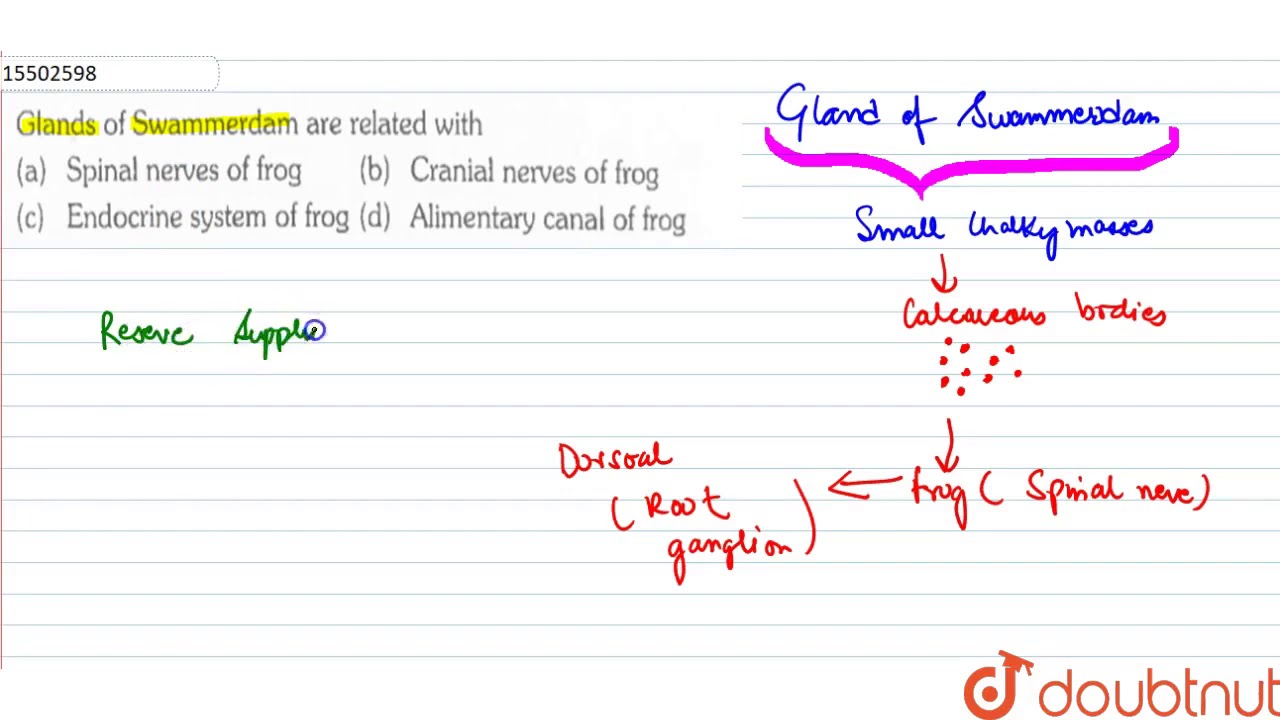 15502598
Glands of Swammerdam are related with
(a) Spinal nerves of frog (b) Cranial nerves of frog
(c) Endocrine system of frog (d) Alimentary canal of frog
Gland of Swammerdam
Small Chalky masses
Calcareous bodies
Reserve Supplu
frog ( Spinal nerve )
Dorsoal
( Root
ganglion )
doubtnut